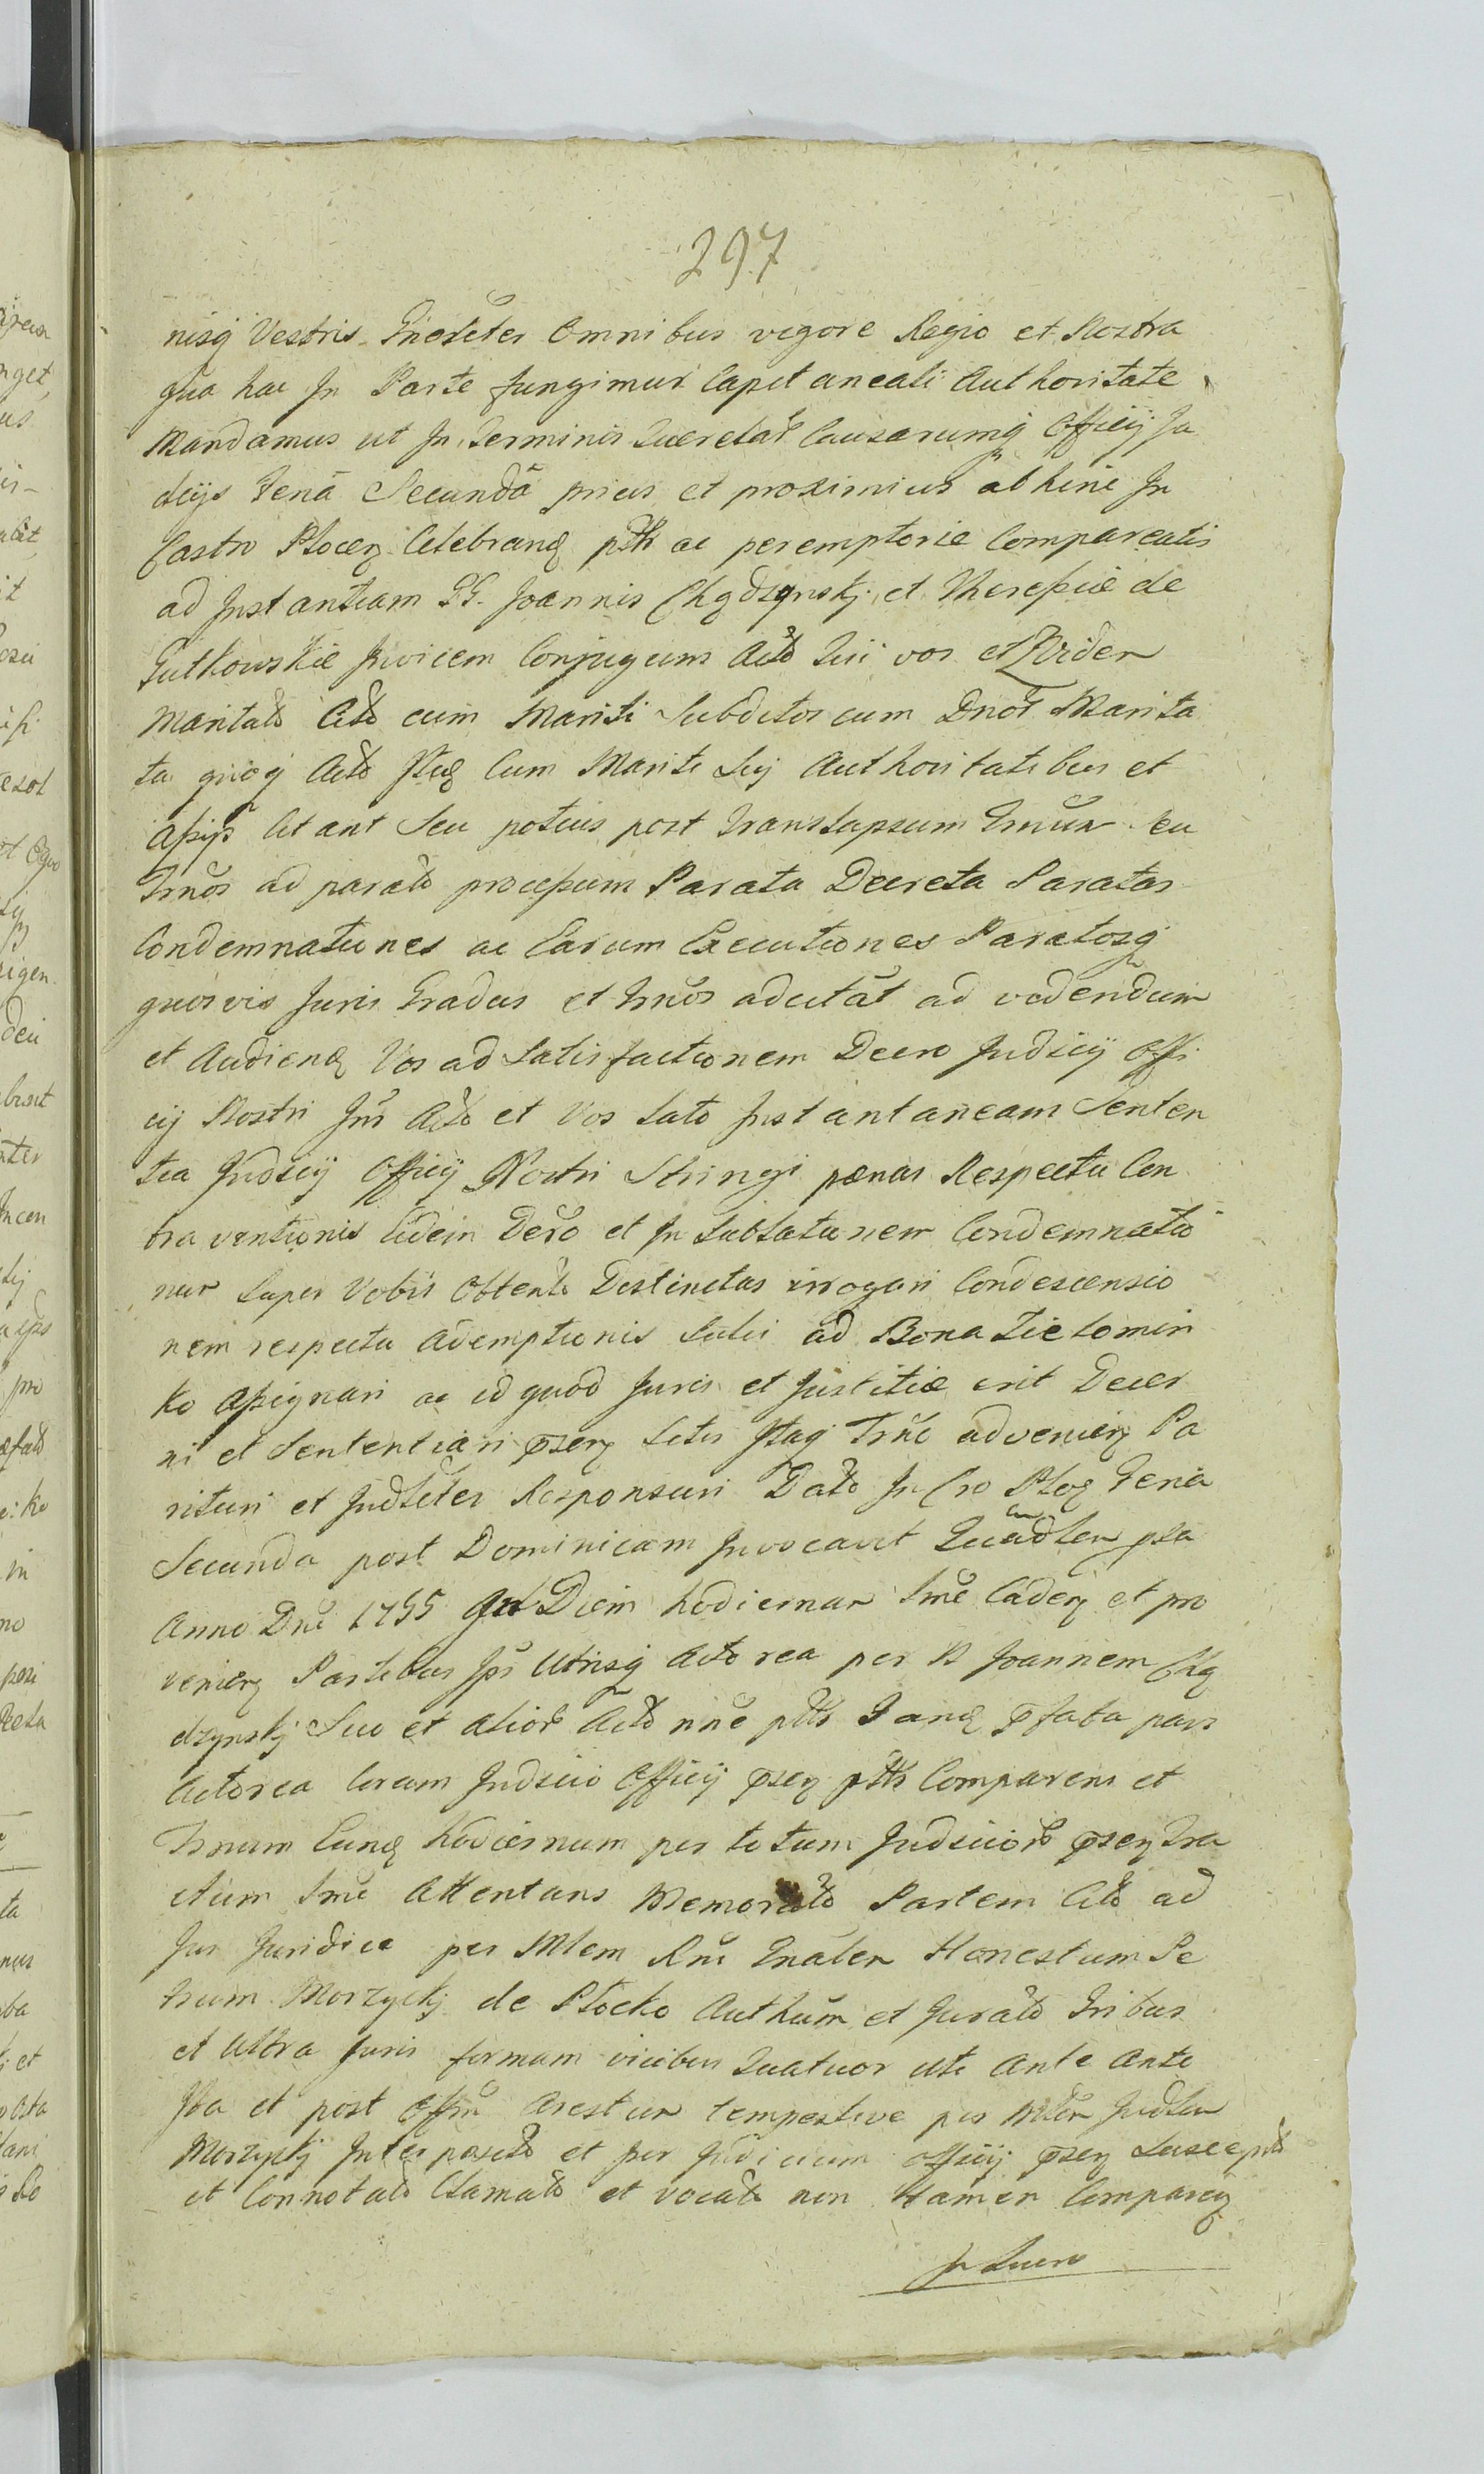 297
nisq Vestris Gnerleter Omnibus vigore Regio et Nostra
qua hac In Parte fungimur Capitaneali Authoritate
Mandamus ut In Terminis Querelar Causarumq Officij Ju
dicijs Feria Secunda prius et proximius abhinc In
Castro Plocen Celebrand psltr ac peremptorie Compareatis
ad Instantiam GG. Joannis Chądzynskj et Theressiæ de
Gutkowskie Invicem Conjugum Acto Qui vos et
Maritato Cito cum Mariti Subditos cum Dnor Marita
ta quoq Acto Itid Cum Mariti Sui Authoritatibus et
Assijs Citant Seu potius post Translapsum Trnum seu
Trnos ad parato processum Parata Decreta Paratas
Condemnationes ac Earum Executiones Paratosq
quosvis Juris Gradus et Trnos adcitat ad videndum
et Audiend Vos ad Satisfactionem Decro Judicij Offi
cij Nostri Acto et Vos Lato Instantaneam Senten
tia Judicij Officij Nostri Stringi pænas Respectu Con
traventionis Eidem Decro et In Sublationem Condemnatio
num Super Vobis Obtento Destinctas irrogari Condescensio
nem respectu Ademptionis Salvi ad Bona Zielomin
ko Assignari ac id quod Juris et Justitiæ erit Decer
ni et Sententiari psen Sitis Itaq Trno advenien Pa
rituri et Judleter Responsuri Dato In Cro Ploc Feria
Secunda post Dominicam Invocavit Quadlem pia
Anno Dni 1755 In Diem hodiernam Trne Caden et pro
venien Partibus Ips Utrisq Actorea per G Joannem Chą
dzynskj Suo et Alior Acto nne psltr Stand pfata pars
Actorea Coram Judicio Officij psen psltr Comparens et
Trnum Eund hodiernum per totum Judicior psen Tra
ctum Trne Attentans Memorato Partem Cito ad
Jus Juridice per Mlem Rni Gnalem Honestum Pe
trum Morzyckj de Płocko Authum et Jurato Tribus
et Ultra Juris formam vicibus Quatuor uti Ante Ante
Ita et post Arestum tempestive per Mlem Judlem
Morzyckj Interposito et per Judicium officij psen Suscepto
et Connotato Clamato et vocato non tamen Comparen
In Lucro